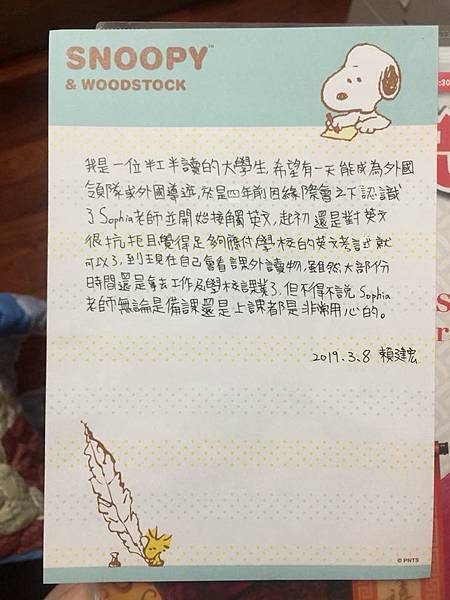 SNOOPY™
& WOODSTOCK
我是一位半工半讀的大學生,希望有一天能成為外國
領隊或外國導遊,於是四年前因緣際會之下認識
了Sophia老師並開始接觸英文,起初還是對英文
很抗拒且覺得足夠應付學校的英文考試就
可以了,到現在自己會看課外讀物,雖然大部份
時間還是拿去工作及學校課業了,但不得不說Sophia
老師無論是備課還是上課都是非常用心的。
2019.3.8 賴建宏
© PNTS
:30
S
r